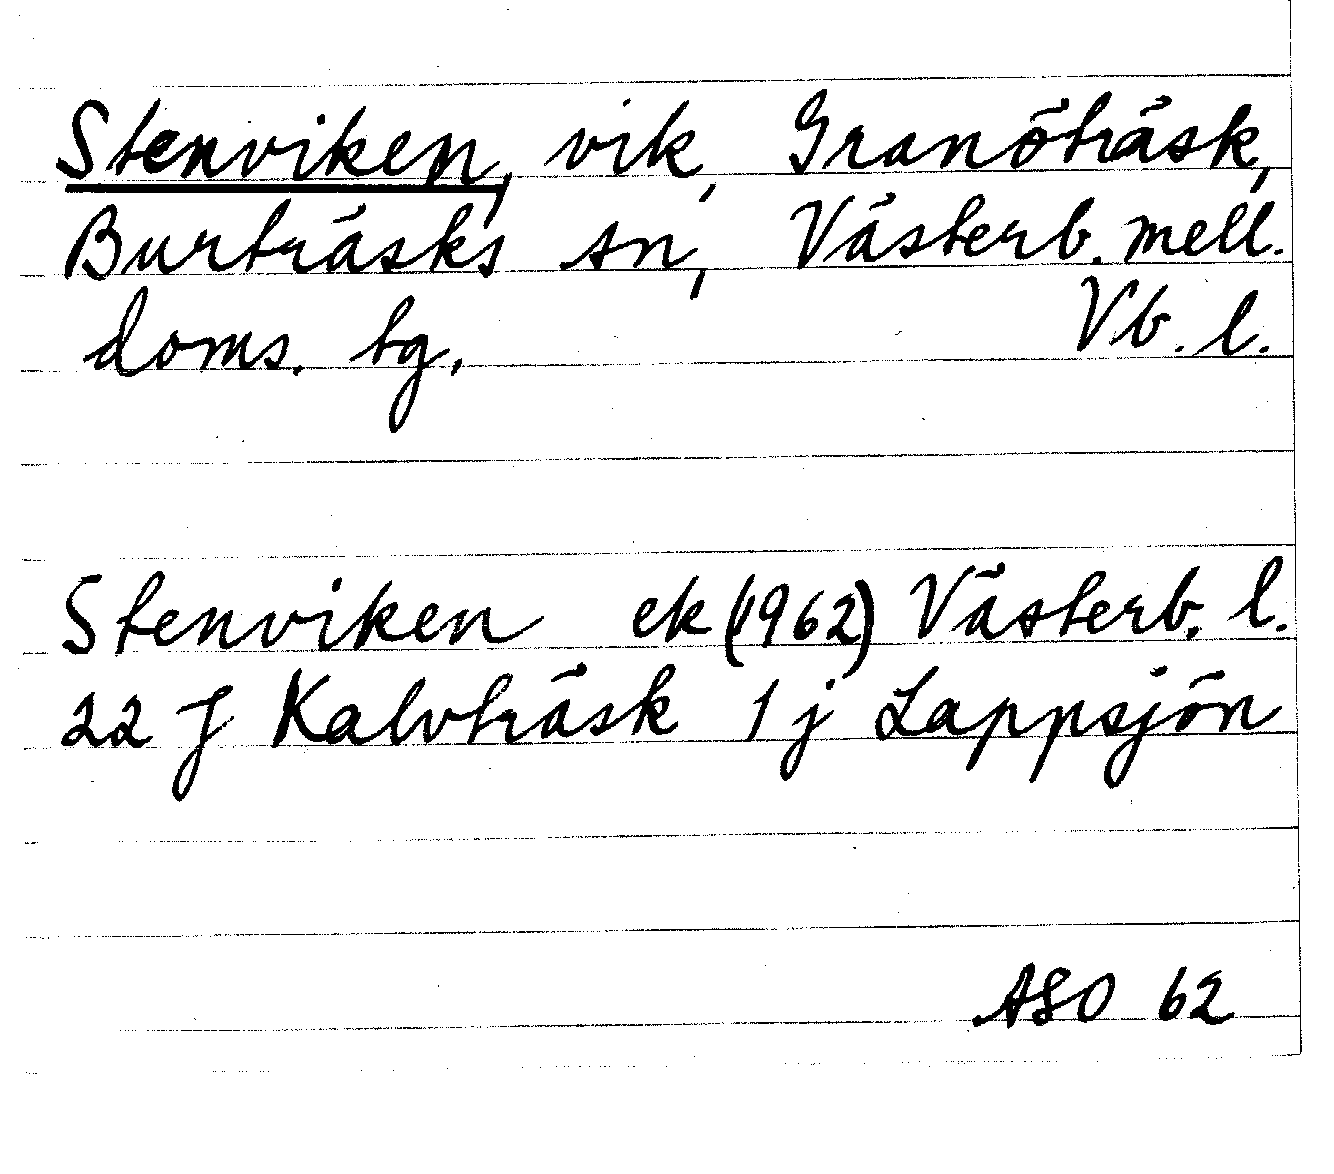 Stenviken, vik, Granöträsk,
Burträsks sn, Västerb. mell.
doms. tg. Vb. l.
Stenviken ek (1962) Västerb. l.
22 J Kalvträsk 1 j Lappsjön
ASO 62